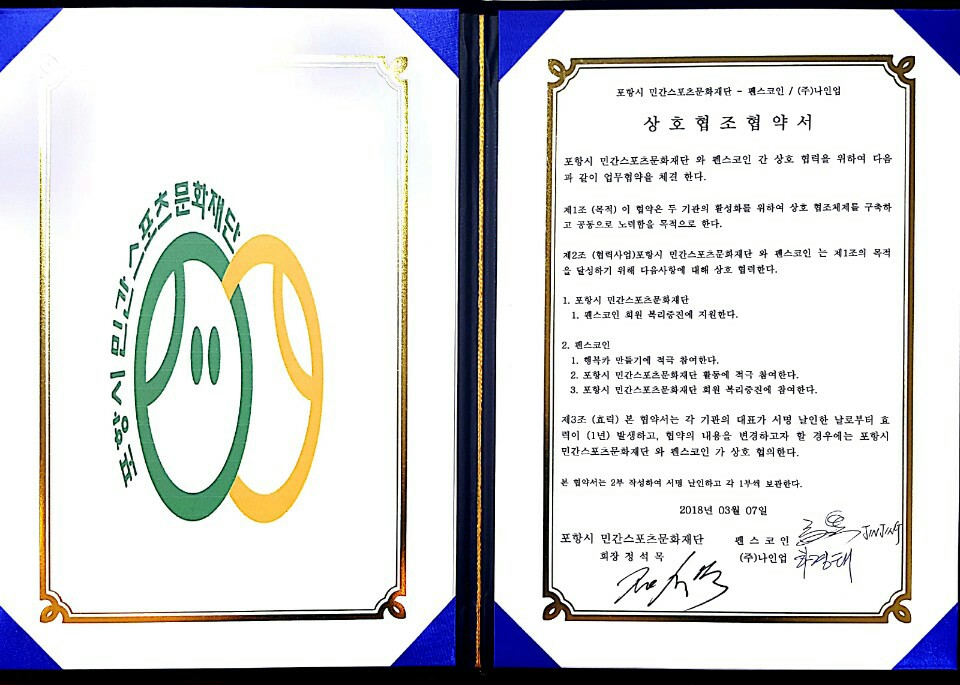 포항시 민간스포츠문화재단
포항시 민간스포츠문화재단 - 펜스코인 / (주)나인업
상호협조협약서
포항시 민간스포츠문화재단 와 펜스코인 간 상호 협력을 위하여 다음
과 같이 업무협약을 체결 한다.
제1조 (목적) 이 협약은 두 기관의 활성화를 위하여 상호 협조체제를 구축하
고 공동으로 노력함을 목적으로 한다.
제2조 (협력사업)포항시 민간스포츠문화재단 와 펜스코인 는 제1조의 목적
을 달성하기 위해 다음사항에 대해 상호 협력한다.
1. 포항시 민간스포츠문화재단
1. 펜스코인 회원 복리증진에 지원한다.
2. 펜스코인
1. 행복카 만들기에 적극 참여한다.
2. 포항시 민간스포츠문화재단 활동에 적극 참여한다.
3. 포항시 민간스포츠문화재단 회원 복리증진에 참여한다.
제3조 (효력) 본 협약서는 각 기관의 대표가 서명 날인한 날로부터 효
력이 (1년) 발생하고, 협약의 내용을 변경하고자 할 경우에는 포항시
민간스포츠문화재단 와 펜스코인 가 상호 협의한다.
본 협약서는 2부 작성하여 서명 날인하고 각 1부씩 보관한다.
2018년 03월 07일
포항시 민간스포츠문화재단 펜스코인 JINJING
회장 정석목 (주)나인업